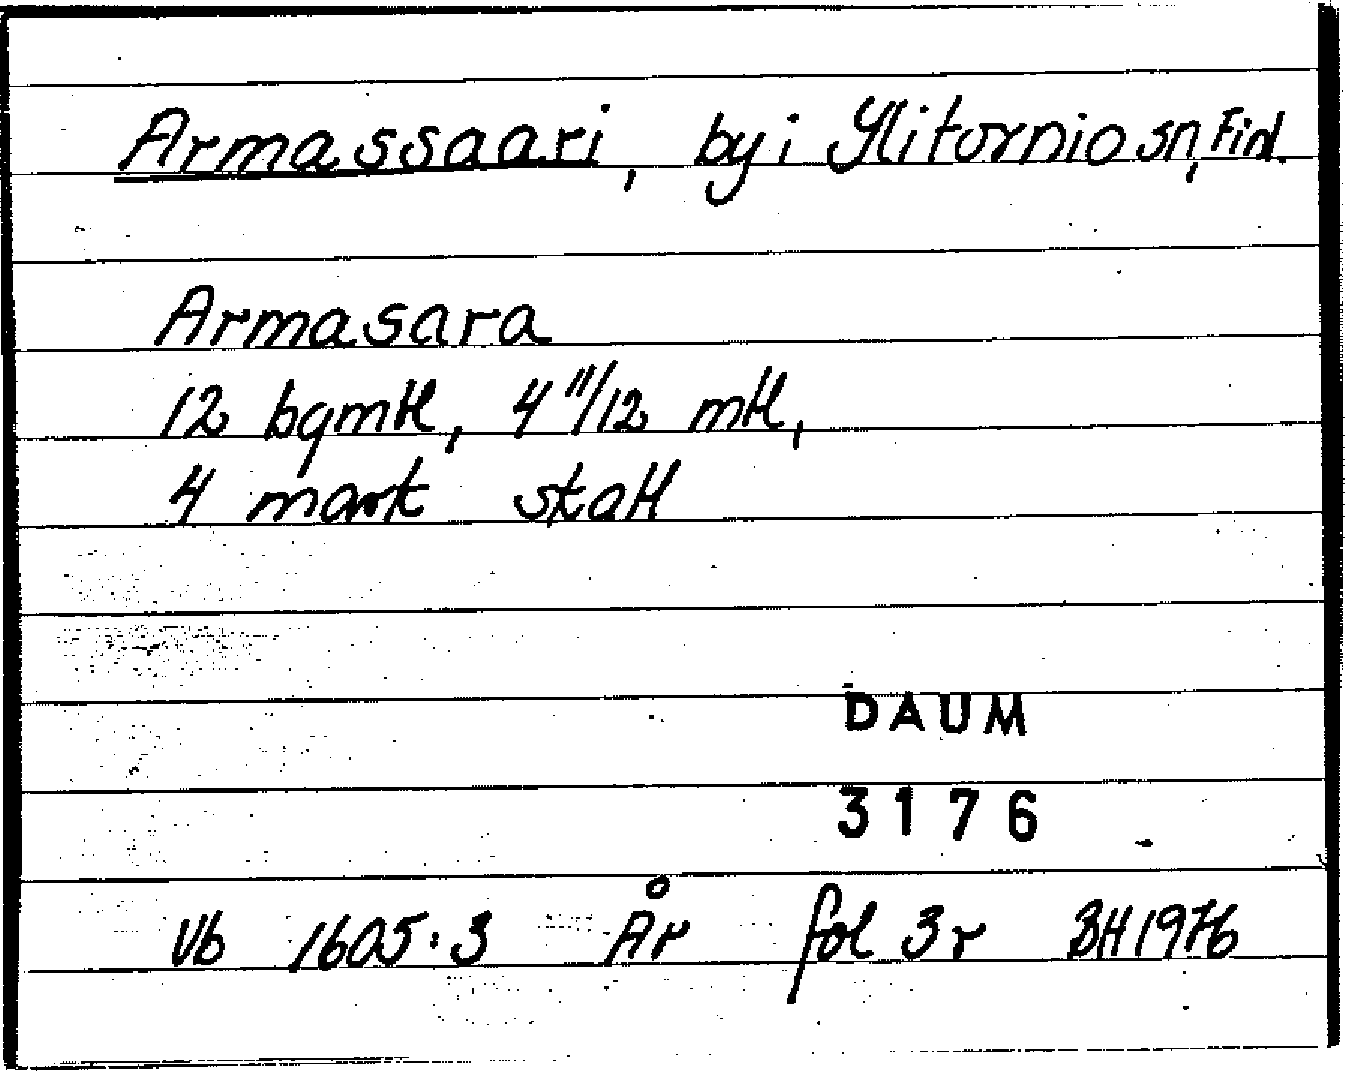 Armassaari, by i Ylitornio sn, Finl.
Armasara
12 bgmkl, 4 11/12 mkl,
4 mark skatt
DAUM
3176
Vb 1605:3 År fol 3r BH 1976